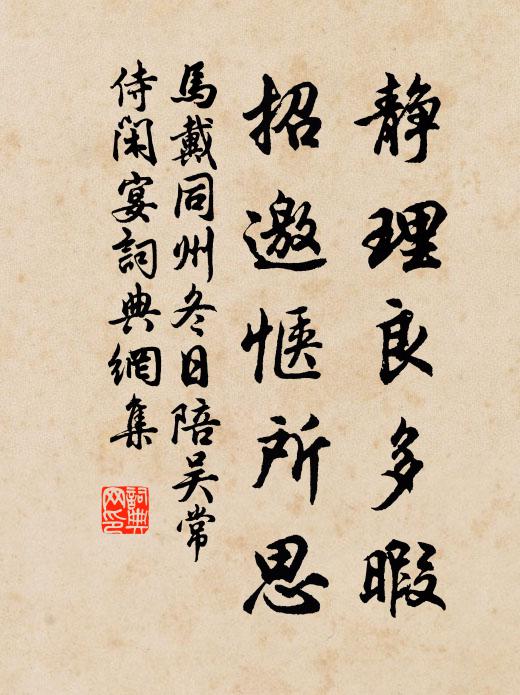 静理良多暇
招邀惬所思
馬戴同州冬日陪吴常
侍閑宴詞典網集
詞典网印